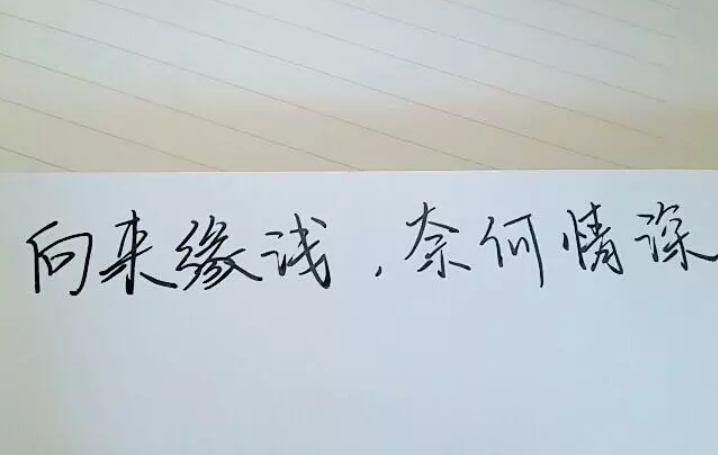 向来缘浅，奈何情深